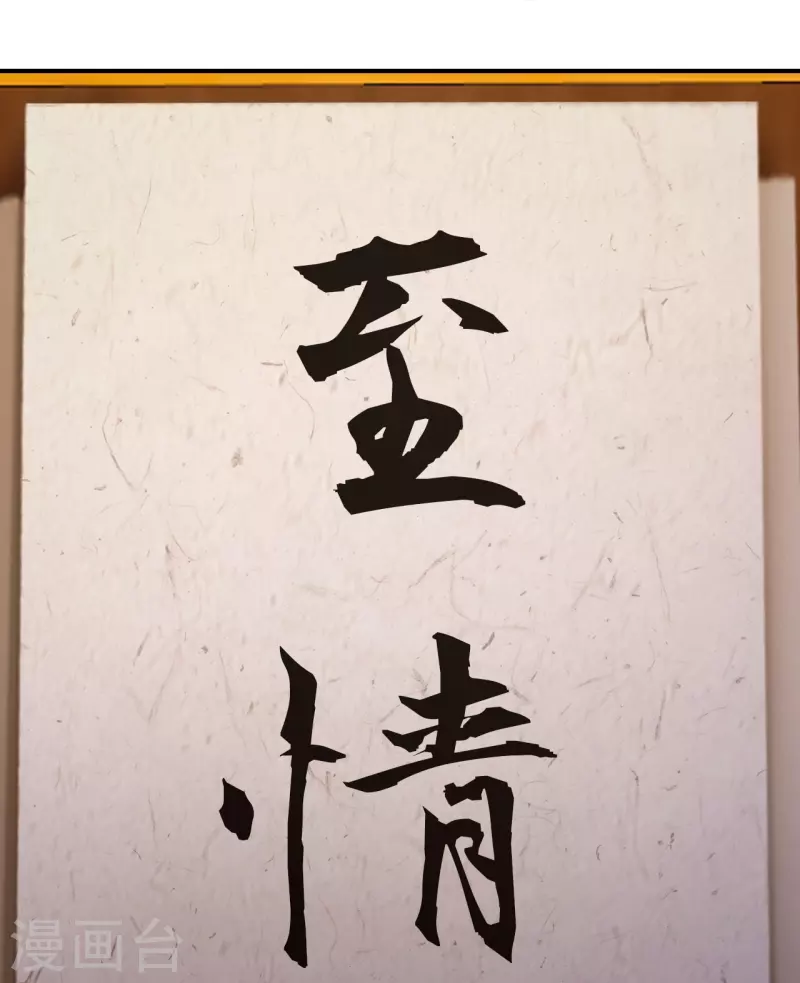 至情
漫画台